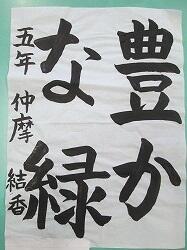 豊か
な緑
五年 仲摩 結香